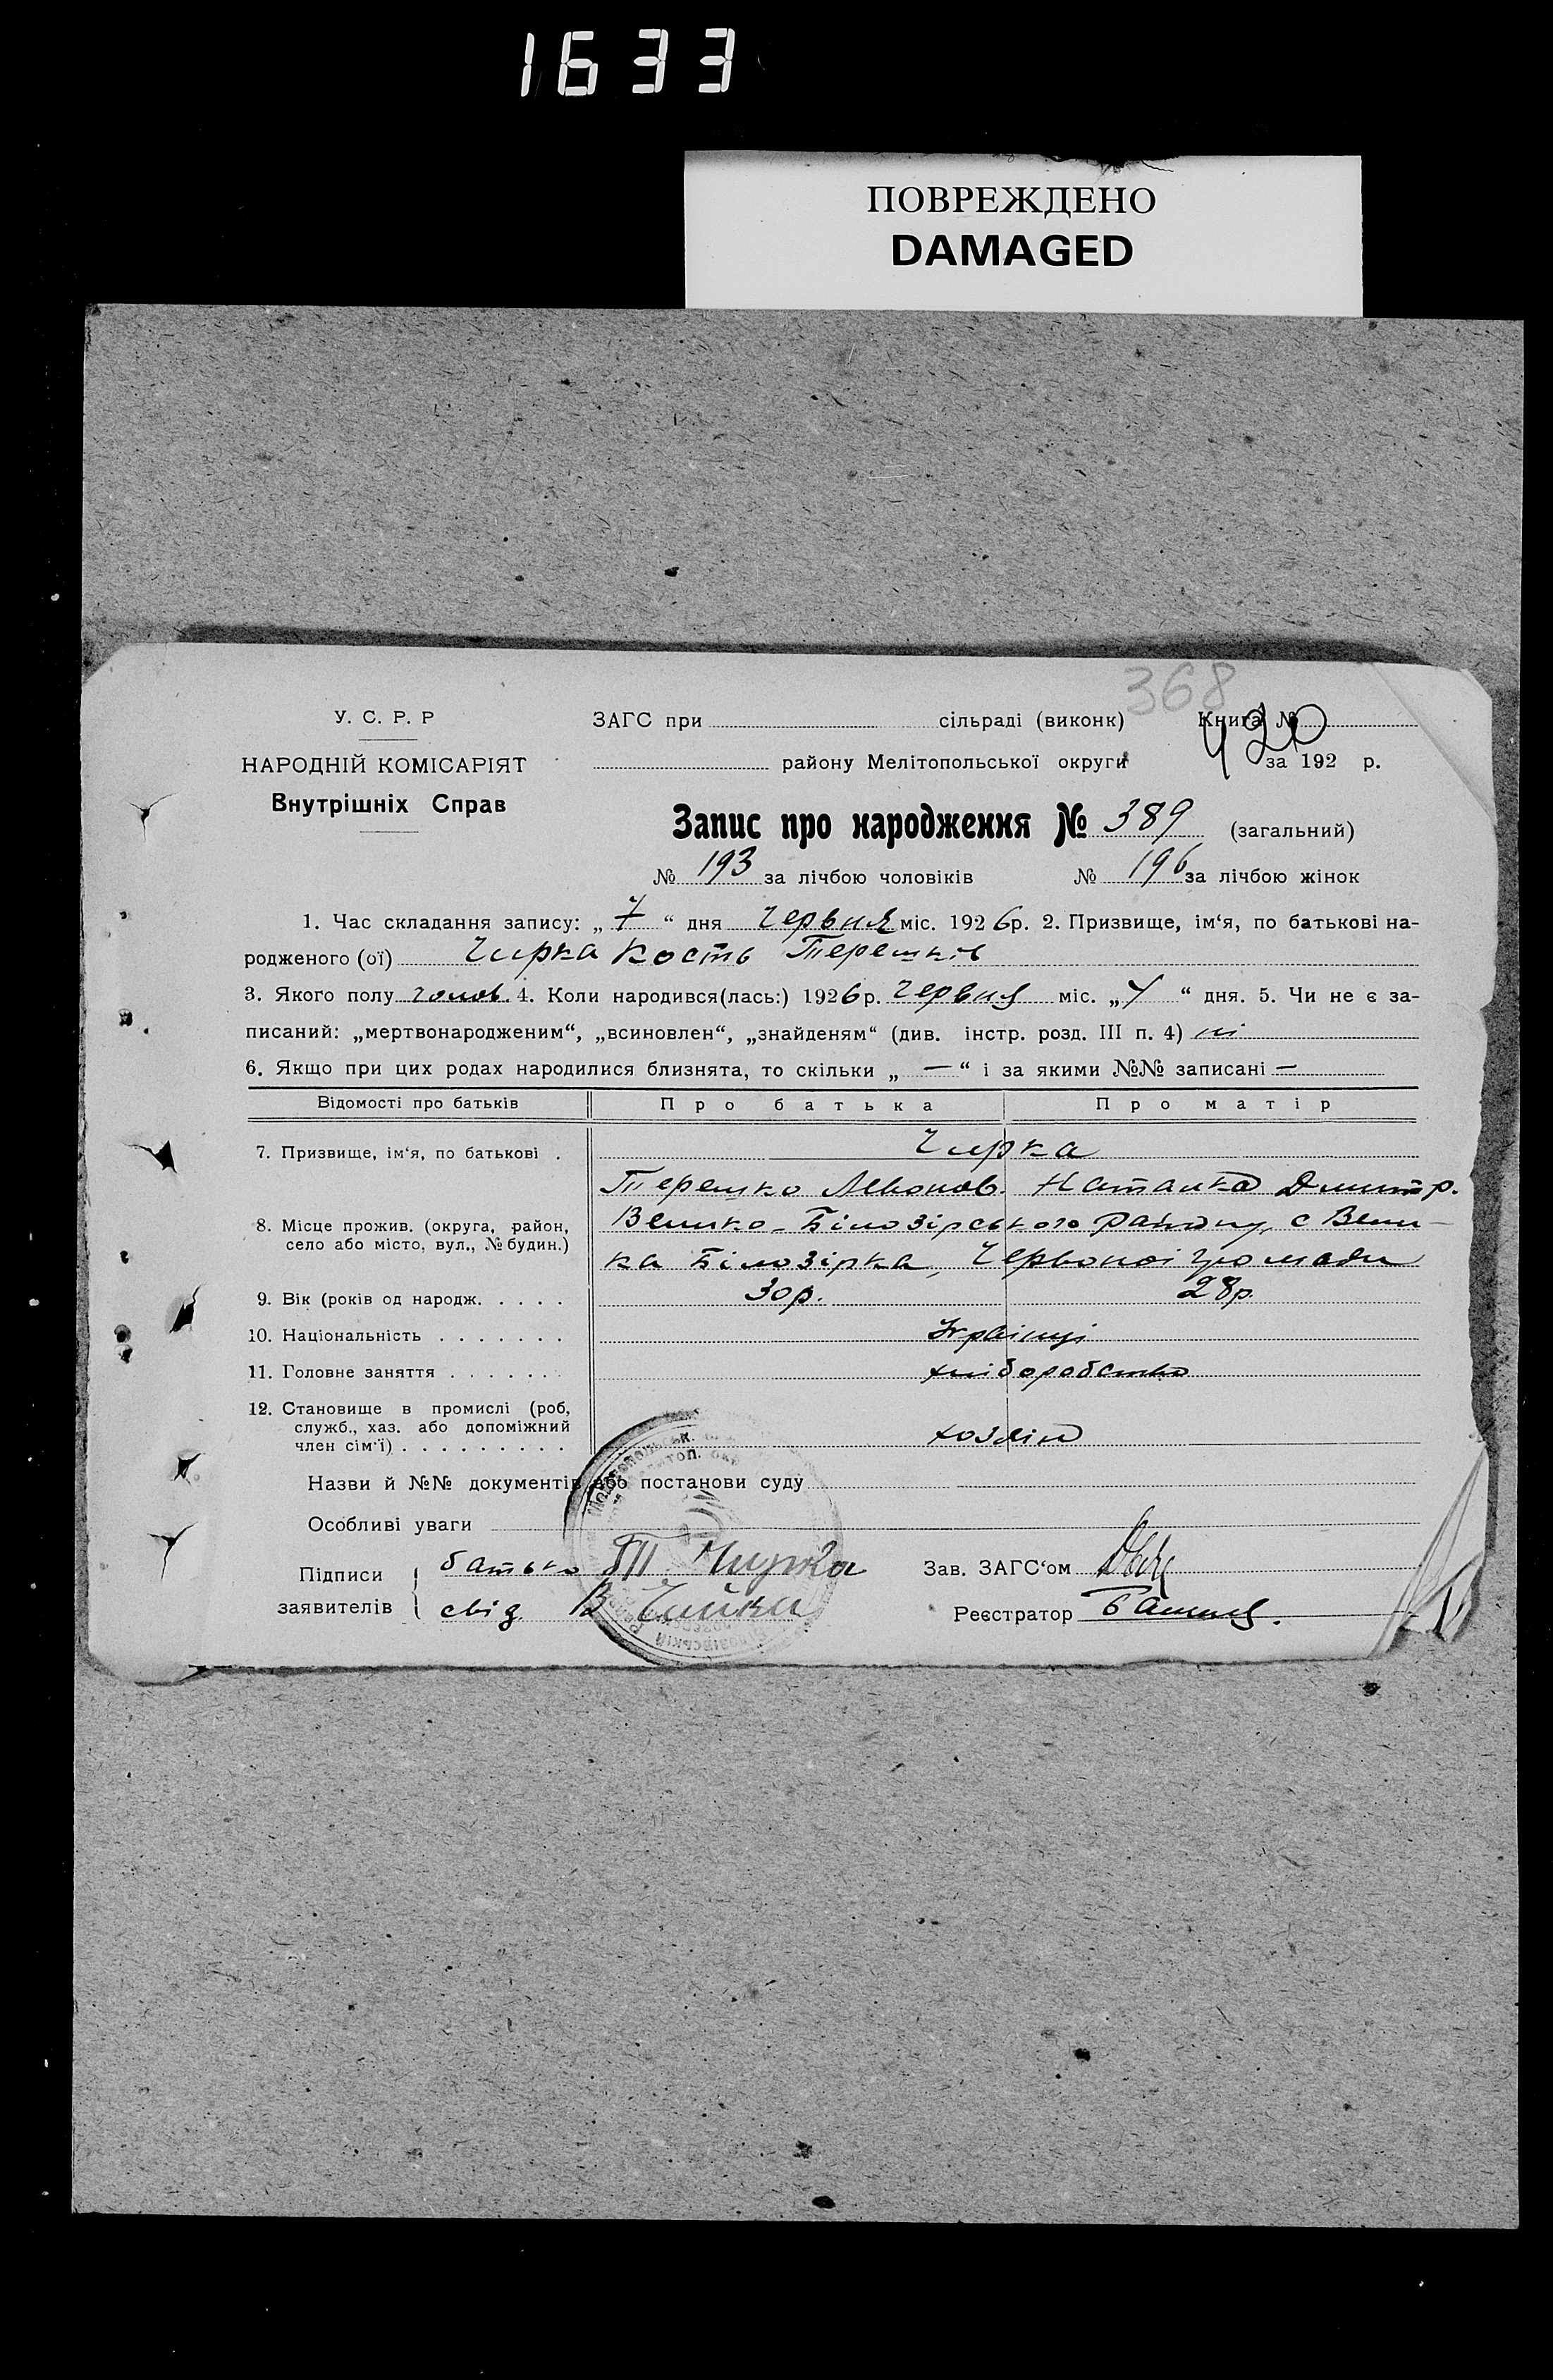 1633
ПОВРЕЖДЕНО
DAMAGED
368
У. С. Р. Р
ЗАГС при сільраді (виконк) Книга №
420
НАРОДНІЙ КОМІСАРІЯТ
району Мелітопольської округи за 192 р.
Внутрішніх Справ
Запис про народження № 389 (загальний)
№ 193 за лічбою чоловіків № 196 за лічбою жінок
1. Час складання запису: „ 7 “ дня Червня міс. 1926р. 2. Призвище, ім‘я, по батькові на-
родженого (ої) Чирка Кость Терешків
3. Якого полу чолов. 4. Коли народився(лась:) 1926р. Червня міс. „ “ дня. 5. Чи не є за-
писаний: „мертвонародженим“, „всиновлен“, „знайденям“ (див. інстр. розд. III п. 4) ні
6. Якщо при цих родах народилися близнята, то скільки „ — “ і за якими №№ записані —
Відомості про батьків Про батька Про матір
7. Призвище, ім‘я, по батькові . Чирка
Терешко Левонов. Наталка Дмитр.
8. Місце прожив. (округа, район, Велико-Білозірського району, с Вели-
село або місто, вул., № будин.)
ка Білозірка, Червоної громади
9. Вік (років од народж. . . . . 30р. 28р.
10. Національність . . . . . . . Українці
11. Головне заняття . . . . . . . хліборобство
12. Становище в промислі (роб,
служб., хаз. або допоміжний
член сім‘ї) . . . . . . . . . хозяін
Назви й №№ документів або постанови суду
Особливі уваги
Підписи батько Т Чирка Зав. ЗАГС‘ом
заявителів свід. В Чайка Реєстратор